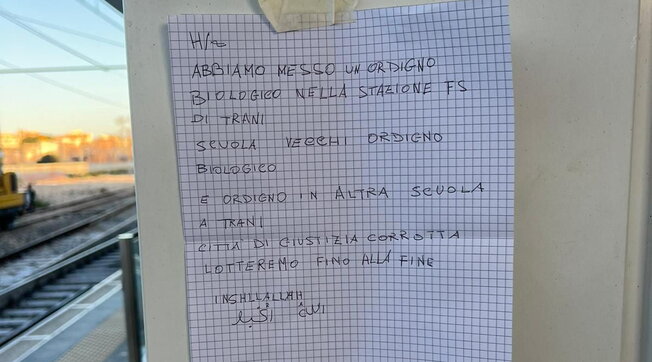 ABBIAMO MESSO UN ORDIGNO
BIOLOGICO NELLA STAZIONE FS
DI TRANI
SCUOLA VECCHI ORDIGNO
BIOLOGICO
E ORDIGNO IN ALTRA SCUOLA
A TRANI
CITTÀ DI GIUSTIZIA CORROTTA
LOTTEREMO FINO ALLA FINE
INSHLLALLAH